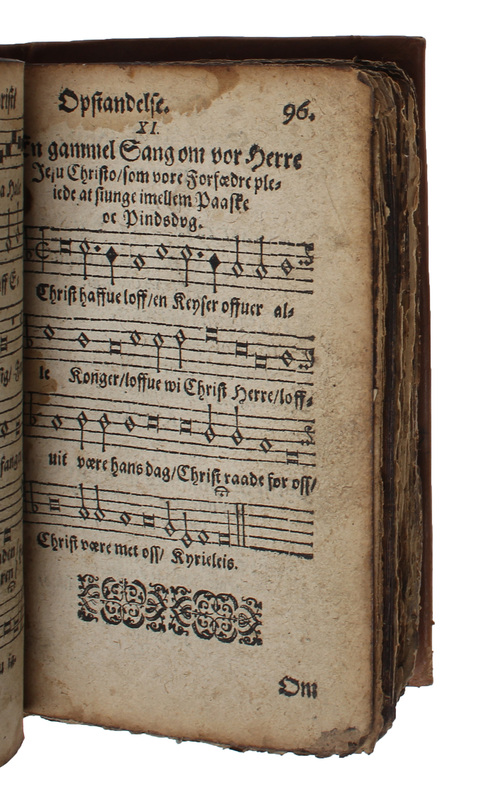 Opstandelse. 96.
XI.
En gammel Sang om vor Herre
Jesu Christo/som vore Forfædre ple-
iede at siunge imellem Paaske
oc Pindsdvg.
Christ haffue loff/en Keyser offuer al-
le Konger/loffue wi Christ Herre/loff-
uit være hans dag/Christ raade for oss/
Christ være met oss/ Kyrieleis.
Om